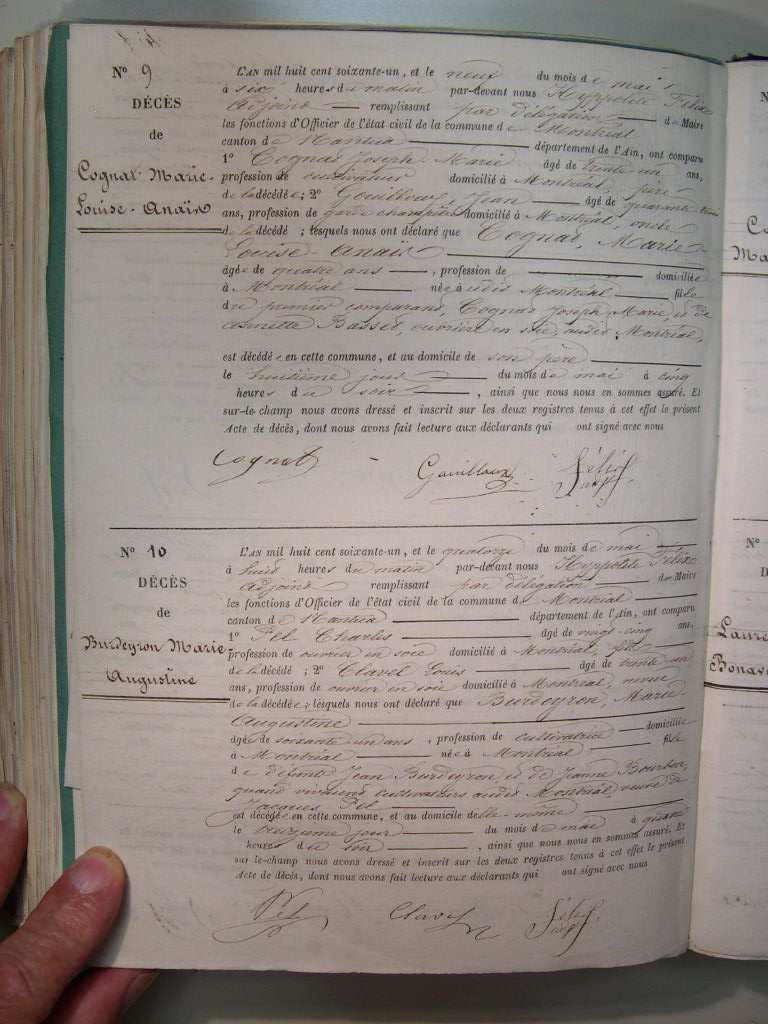 Nº 9
DÉCÈS
de
Cognat Marie-
Louise-Anaïs
L'AN mil huit cent soixante-un, et le neuf du mois de mai
à six heures du matin par-devant nous Hyppolite Félix
adjoint remplissant par délégation de Maire
les fonctions d'Officier de l'état civil de la commune de Montréal
canton de Nantua département de l'Ain, ont comparu
1º Cognat Joseph Marie âgé de trente un ans,
profession de cultivateur domicilié à Montréal, père
de la décédée; 2º Gouilloux, Jean âgé de quarante
ans, profession de garde champêtre domicilié à Montréal, oncle
de la décédée; lesquels nous ont déclaré que Cognat, Marie-
Louise-Anaïs
âgée de quatre ans, profession de domiciliée
à Montréal née audit Montréal fille
du premier comparant, Cognat Joseph Marie, et de
Basset, ouvrière en soie, audit Montréal,
est décédée en cette commune, et au domicile de son père
le huitième jour du mois de mai à cinq
heures du soir, ainsi que nous nous en sommes assuré. Et
sur-le-champ nous avons dressé et inscrit sur les deux registres tenus à cet effet le présent
Acte de décès, dont nous avons fait lecture aux déclarants qui ont signé avec nous
Cognat Gouilloux Félix
adjt
Nº 10
DÉCÈS
de
Burdeyron Marie
Augustine
L'AN mil huit cent soixante-un, et le quatorze du mois de mai
à huit heures du matin par-devant nous Hyppolite Félix
adjoint remplissant par délégation de Maire
les fonctions d'Officier de l'état civil de la commune de Montréal
canton de Nantua département de l'Ain, ont comparu
1º Pel Charles âgé de vingt-cinq ans,
profession de ouvrier en soie domicilié à Montréal, fils
de la décédée; 2º Clavel Louis âgé de trente un
ans, profession de ouvrier en soie domicilié à Montréal, neveu
de la décédée; lesquels nous ont déclaré que Burdeyron, Marie
Augustine
âgée de soixante un ans, profession de cultivatrice domiciliée
à Montréal née à Montréal fille
de défunts Jean Burdeyron et de Jeanne Bourbon,
quand vivaient cultivateurs audit Montréal veuve de
Jacques Pel
est décédée en cette commune, et au domicile d'elle-même
le treizième jour du mois de mai à quatre
heures du soir, ainsi que nous nous en sommes assuré. Et
sur-le-champ nous avons dressé et inscrit sur les deux registres tenus à cet effet le présent
Acte de décès, dont nous avons fait lecture aux déclarants qui ont signé avec nous
Pel Clavel Félix
adjt
Nº
Nº
Laure
Bonav